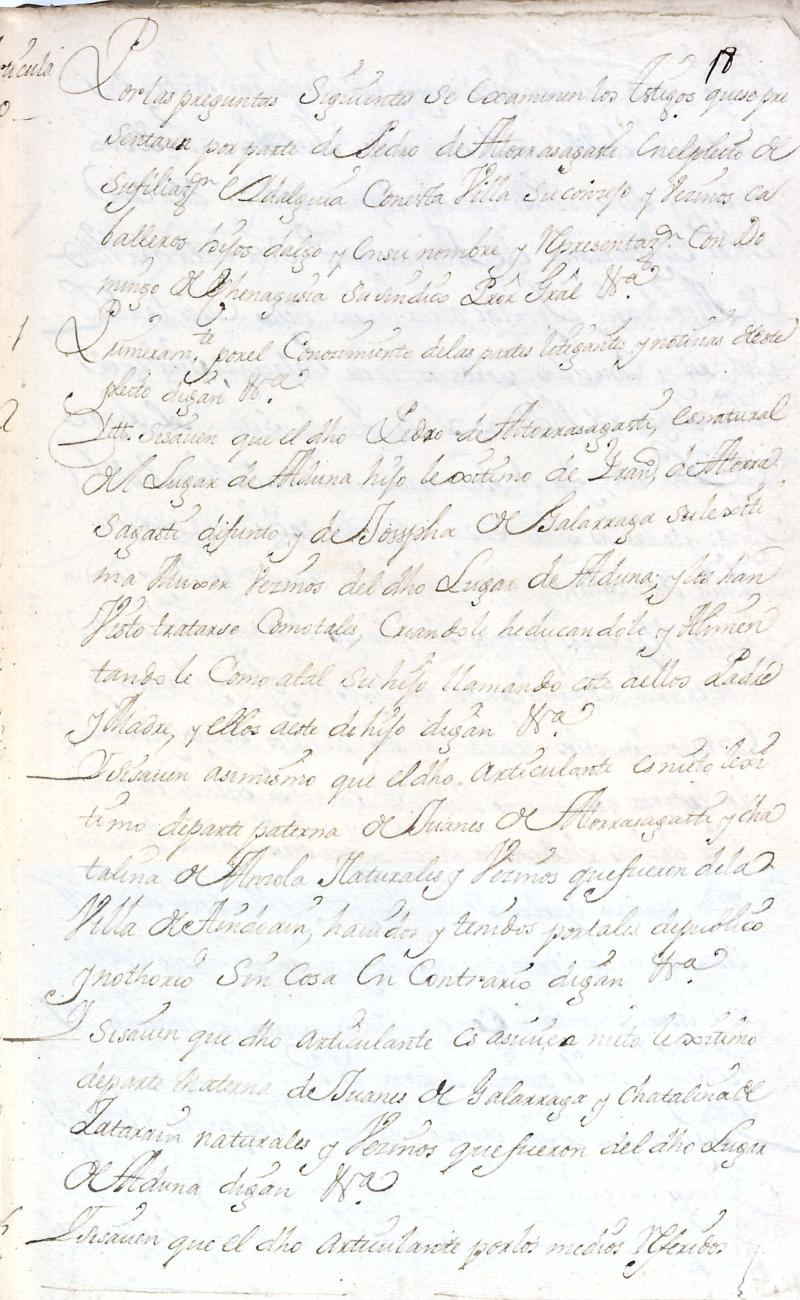 18
Por las preguntas Siguientes Se Examinen los testigos que se pre
sentaren por parte de Pedro de Atorrasagasti En el pleito de
su filiazon E Idalguia Con esta Villa su conzejo y Vezinos Ca
balleros hijos dalgo y en su nombre y Representazon Con Do
mingo de Echenagusia su sindico Pror Gral &ra
1 Primeramte por el Conozimiento de las partes litigantes y noticias de este
pleito digan &ra
2 Itt. si saven que el dho Pedro de Atorrasagasti, es natural
del Lugar de Alduna hijo lexitimo de Frando de Atorra
sagasti difunto y de Josepha de Galarraga su lexiti
ma Muxer Vezinos del dho Lugar de Alduna, y los han
Visto tratarse Como tales, Criandole heducandole y Alimen
tandole Como a tal su hijo llamando este a ellos Padre
y Madre, y ellos a este de hijo digan &ra
Y si saven asimismo que el dho Articulante es nieto lexi
timo de parte paterna de Juanes de Atorrasagasti y Cha
talina de Anzola Naturales y Vezinos que fueron de la
Villa de Aindoain, havidos y tenidos por tales de publico
y nothorio Sin Cosa En Contrario digan &ra
Y si saven que dho Articulante es asi vien nieto lexitimo
de parte Materna de Juanes de Galarraga y Chatalina de
Zatarain naturales y Vezinos que fueron del dho Lugar
de Alduna digan &ra
Y si saven que el dho Articulante por los medios Referidos